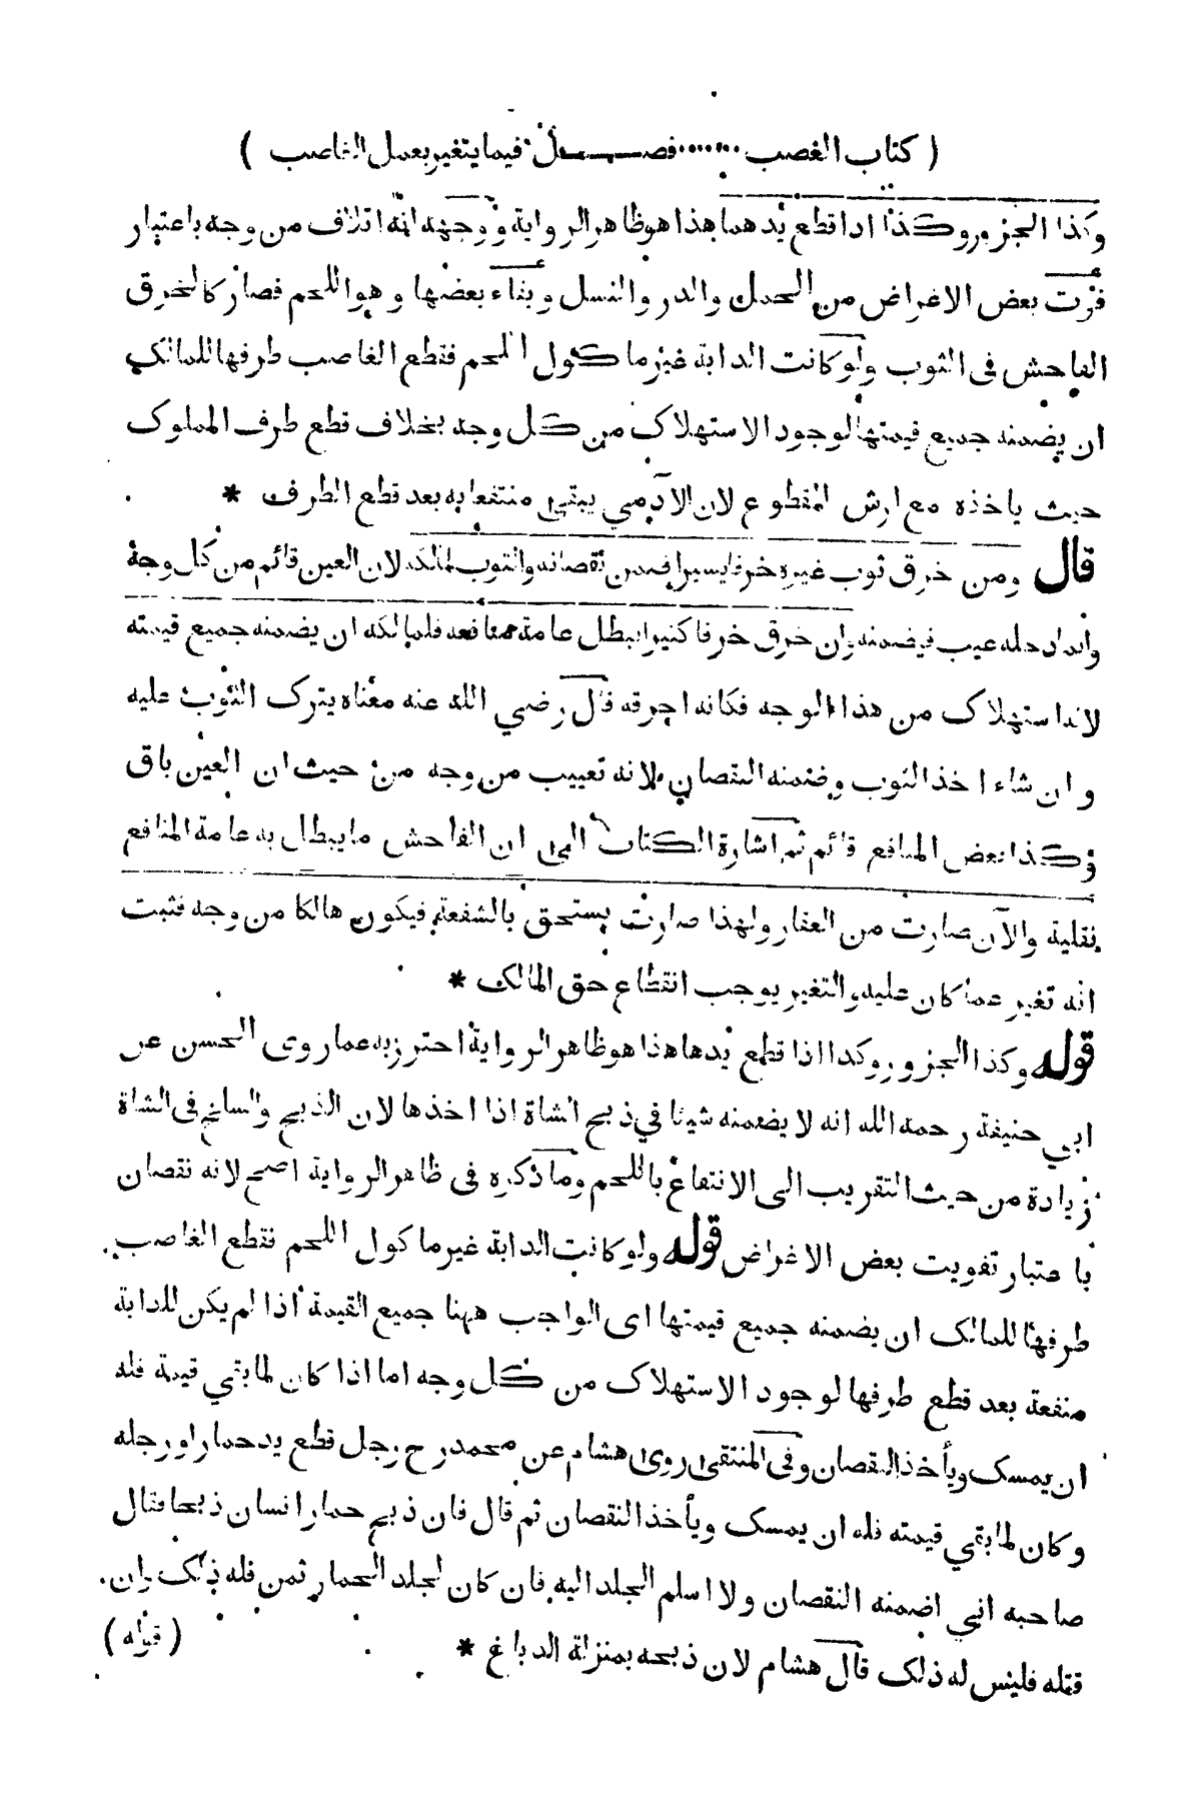 ( كتاب الغصب ...... فصــل فيما يتغير بعمل الغاصب )
وكذا الجزور وكذا اذا قطع يدهما هذا هو ظاهر الرواية ووجهه انه اتلاف من وجه باعتبار
فوت بعض الاغراض من الحمل والدر والنسل وبقاء بعضها وهو اللحم فصار كالخرق
الفاحش فى الثوب ولو كانت الدابة غير ماكول اللحم فقطع الغاصب طرفها للمالك
ان يضمنه جميع قيمتها لوجود الاستهلاك من كل وجه بخلاف قطع طرف المملوك
حيث ياخذه مع ارش المقطوع لان الآدمي يبقى منتفعا به بعد قطع الطرف *
قال ومن خرق ثوب غيره خرقا يسيرا ضمن نقصانه والثوب لمالكه لان العين قائم من كل وجه
وانما دخله عيب فيضمنه وان خرق خرقا كثيرا يبطل عامة منافعه فلمالكه ان يضمنه جميع قيمته
لانه استهلاك من هذا الوجه فكانه احرقه قال رضي الله عنه معناه يترك الثوب عليه
وان شاء اخذ الثوب وضمنه النقصان لانه تعييب من وجه من حيث ان العين باق
وكذا بعض المنافع قائم ثم اشارة الكتاب الى ان الفاحش ما يبطل به عامة المنافع
نقلية والآن صارت من العقار ولهذا صارت يستحق بالشفعة فيكون هالكا من وجه فثبت
انه تغير عما كان عليه والتغير يوجب انقطاع حق المالك *
قوله وكذا الجزور وكذا اذا قطع يدها هذا هو ظاهر الرواية احترز به عما روى الحسن عن
ابي حنيفة رحمه الله انه لا يضمنه شيئا في ذبح الشاة اذا اخذها لان الذبح والسلخ فى الشاة
زيادة من حيث التقريب الى الانتفاع باللحم وما ذكره فى ظاهر الرواية اصح لانه نقصان
با عتبار تفويت بعض الاغراض قوله ولو كانت الدابة غير ماكول اللحم فقطع الغاصب
طرفها للمالك ان يضمنه جميع قيمتها اى الواجب ههنا جميع القيمة اذا لم يكن للدابة
منفعة بعد قطع طرفها لوجود الاستهلاك من كل وجه اما اذا كان لما بقي قيمة فله
ان يمسك ويأخذ النقصان وفى المنتقى روى هشام عن محمد رح رجل قطع يد حمار او رجله
وكان لما بقي قيمته فله ان يمسك ويأخذ النقصان ثم قال فان ذبح حمار انسان ذبحا فقال
صاحبه اني اضمنه النقصان ولا اسلم الجلد اليه فان كان لجلد الحمار ثمن فله ذلك وان
قتله فليس له ذلك قال هشام لان ذبحه بمنزلة الدباغ *
( قوله )